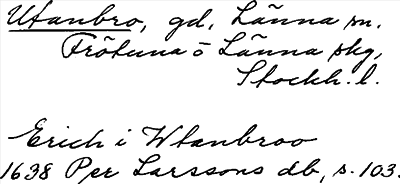 Utanbro, gd, Länna sn.
Frötuna o Länna skg,
Stockh. l.
Erich i Wtanbroo
1638 Per Larssons db, s. 103.